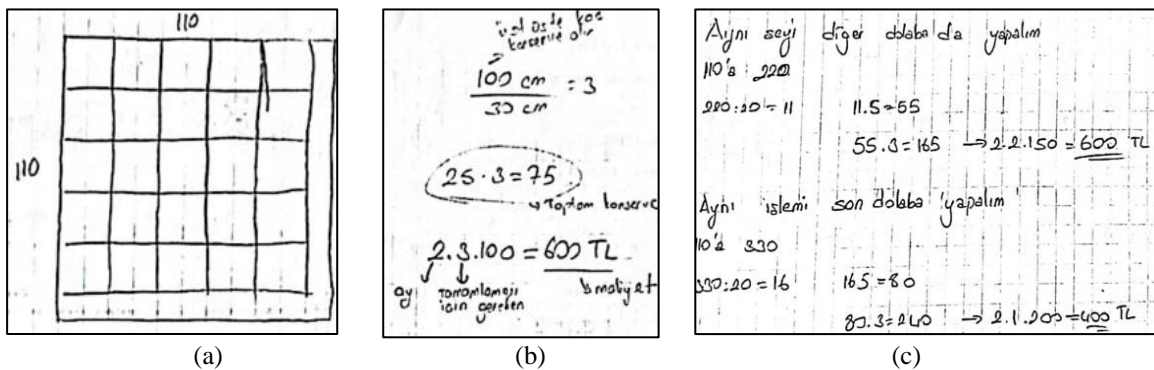 110
110
(a)
üst üste kaç
konserve olur
100 cm
30 cm
= 3
25 . 3 = 75
Toplam konserve
2.3.100 = 600 TL
ay
tamamlaması
için gereken
maliyet
(b)
Aynı şeyi diğer dolaba da yapalım
110'a 220
220:20 = 11 11.5=55
55.3=165 → 2.2.150 = 600 TL
Aynı işlemi son dolaba yapalım
110'a 330
330:20 = 16 16.5=80
80.3=240 → 2.1.200=400 TL
(c)